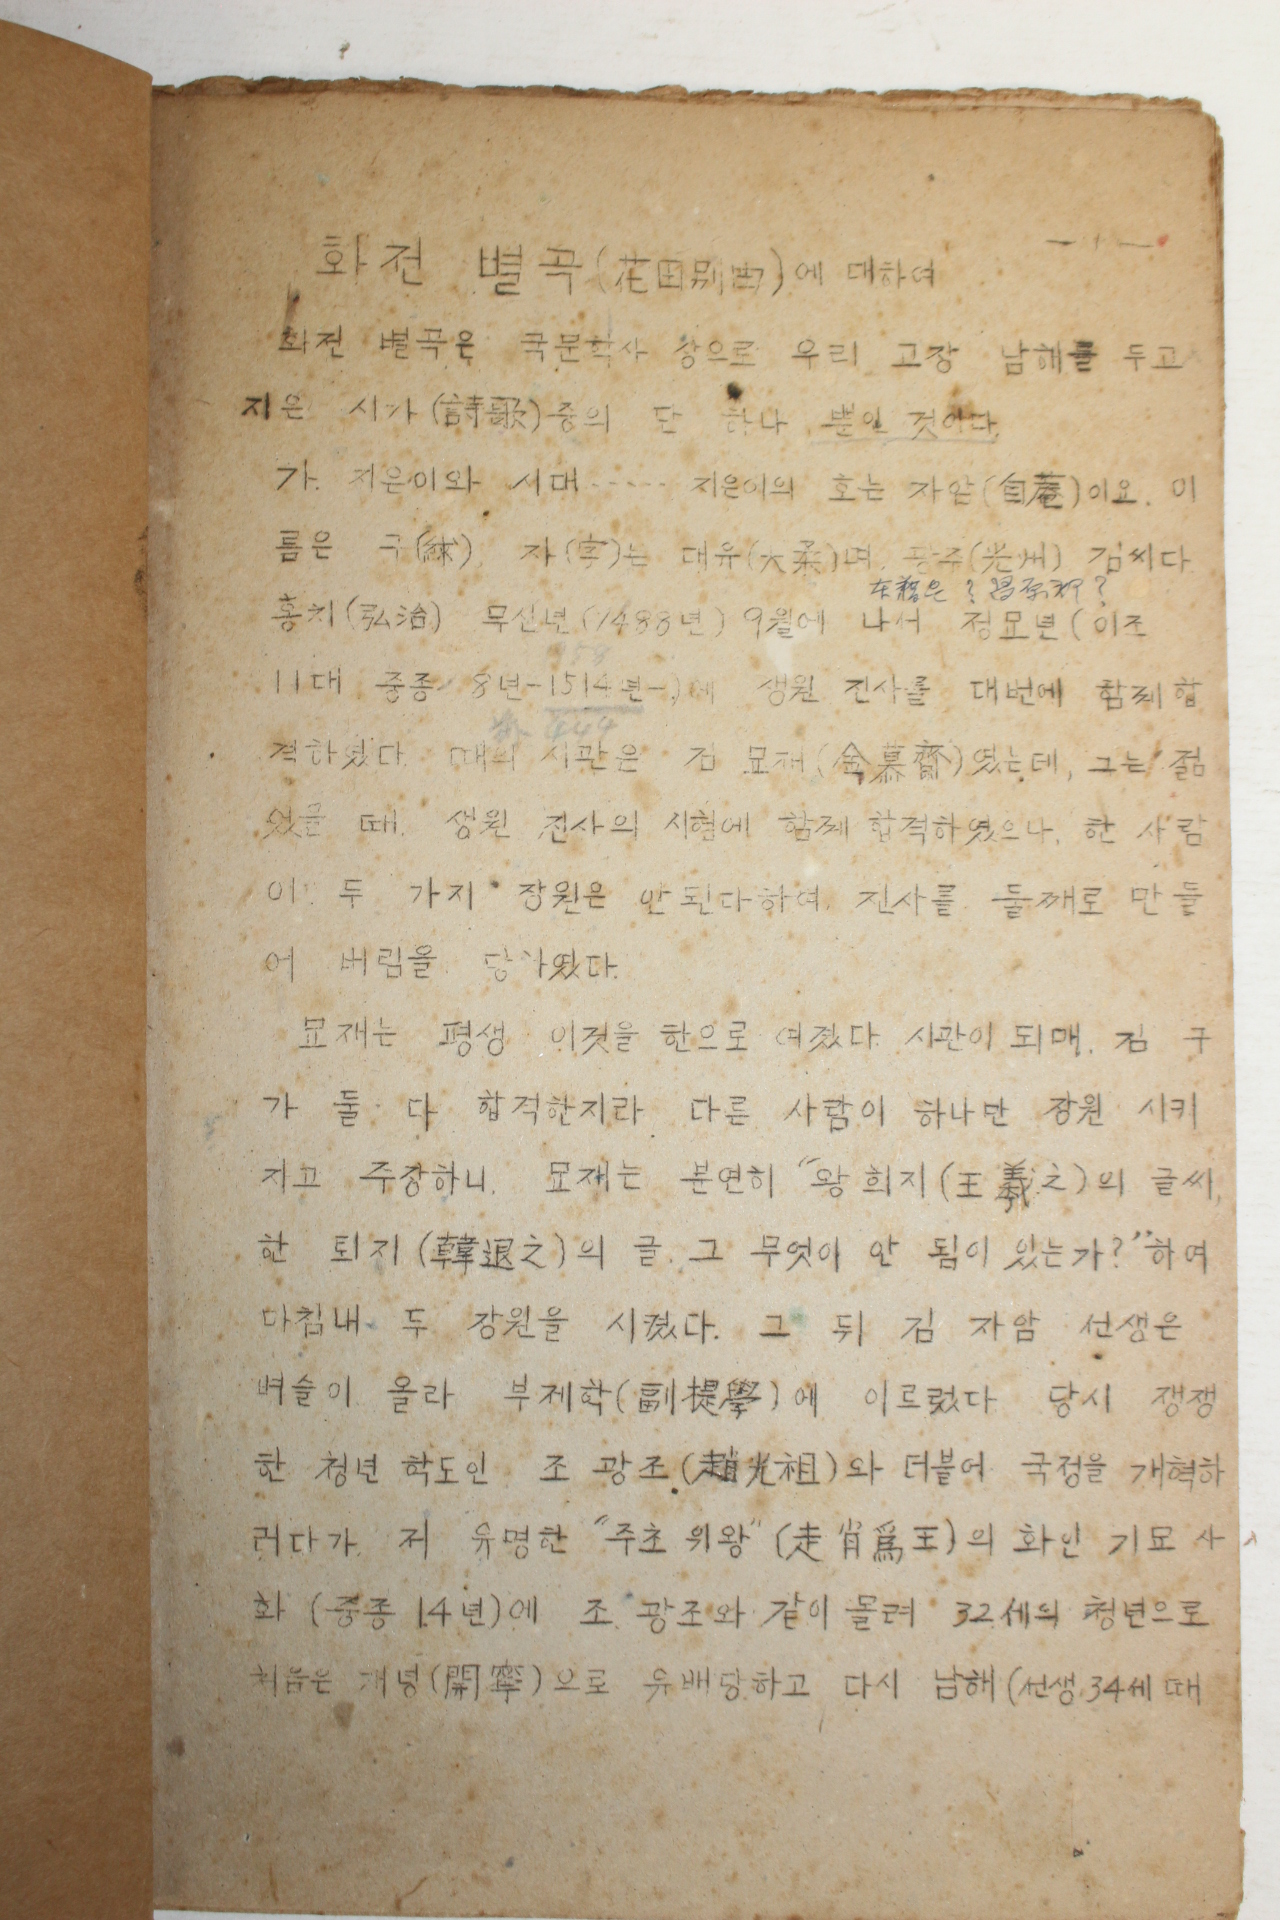 - 1 -
화전 별곡(花田別曲)에 대하여
화전 별곡은 국문학사 상으로 우리 고장 남해를 두고
지은 시가(詩歌)중의 단 하나 뿐인 것이다.
가. 지은이와 시대 ‥‥‥ 지은이의 호는 자암(自菴)이요. 이
름은 구(絿), 자(字)는 대유(大柔)며. 광주(光州) 김씨다.
홍치(弘治) 무신년(1488년) 9월에 나서 정묘년(이조
11대 중종 8년-1514년-)에 생원 진사를 대번에 함께 합
격하였다. 때의 시관은 김 모재(金慕齋)였는데, 그는 젊
었을 때. 생원 진사의 시험에 함께 합격하였으나. 한 사람
이 두 가지 장원은 안된다하여. 진사를 둘째로 만들
어 버림을 당하였다.
묘재는 평생 이것을 한으로 여겼다. 시관이 되매. 김 구
가 둘 다 합격한지라 다른 사람이 하나만 장원 시키
자고 주장하니. 묘재는 분연히 "왕희지(王羲之)의 글씨,
한 퇴지(韓退之)의 글. 그 무엇이 안 됨이 있는가?"하여
마침내 두 장원을 시켰다. 그 뒤 김 자암 선생은
벼슬이 올라 부제학(副提學)에 이르렀다 당시 쟁쟁
한 청년 학도인 조 광조(趙光祖)와 더불어 국정을 개혁하
려다가. 저 유명한 "주초 위왕"(走肖爲王)의 화인 기묘 사
화 (중종 14년)에 조 광조와 같이 몰려 32세의 청년으로
처음은 개녕(開寧)으로 유배당하고 다시 남해(선생 34세 때